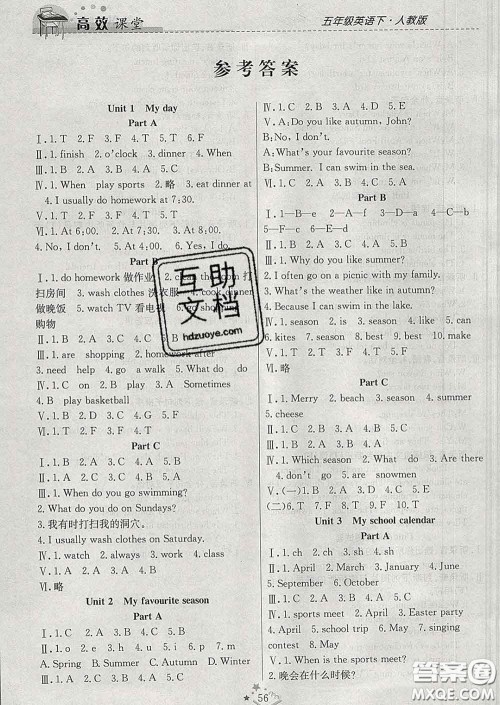 高效课堂
五年级英语下·人教版
参考答案
Unit 1 My day
Part A
Ⅰ.1.T 2.F 3.F 4.T 5.T 6.F
Ⅱ.1.finish 2.o'clock 3.dinner 4.When
Ⅲ.1.B 2.A 3.B 4.C 5.A
Ⅳ.1.When play sports 2.略 3.eat dinner at
4.I usually do homework at 7:30.
Ⅴ.1.At 6:00. 2.At 7:30. 3.At 8:00.
4.No, I don't. 5.At 4:00. 6.Yes, I do.
Part B
Ⅰ.1.do homework 做作业 2.clean the room 打
扫房间 3.wash clothes 洗衣服 4.cook dinner
做晚饭 5.watch TV 看电视 6.go shopping
购物
Ⅱ.1.B 2.A 3.C 4.A 5.B
Ⅲ.1.are shopping 2.homework after
3.need help 4.go for a walk 5.What do do
Ⅳ.1.C 2.on 3.play A Sometimes
4.B play basketball
Ⅴ.1.D 2.A 3.C 4.G 5.F
Ⅵ.1.T 2.F 3.F 4.T 5.F
Part C
Ⅰ.1.B 2.D 3.C 4.A 5.B
Ⅱ.1.B 2.A 3.C 4.A 5.B
Ⅲ.1.When do you go swimming?
2.What do you do on Sundays?
3.我有时打扫我的洞穴。
4.I usually wash clothes on Saturday.
Ⅳ.1.D 2.B 3.A 4.C
Ⅴ.1.watch 2.work 3.always 4.work
Ⅵ.略
Unit 2 My favourite season
Part A
Ⅰ.1.B 2.A 3.C 4.B 5.A
Ⅱ.1.r 2.u m 3.o u 4.i 5.p 6.i 7.m
A.Spring B.Summer C.Autumn D.Winter
Ⅲ.1.B 2.A 3.B 4.B 5.A
Ⅳ.1.C 2.B 3.A 4.D 5.C
Ⅴ.A:Do you like autumn, John?
B:No, I don't.
A:What's your favourite season?
B:Summer. I can swim in the sea.
Ⅵ.1.B 2.C 3.A 4.A 5.B
Part B
Ⅰ.1—B—e 2—A—f 3—D—a 4—C—b
5—F—c 6—E—d
Ⅱ.1.C 2.B 3.A 4.C 5.B
Ⅲ.1.What's the weather like today?
2.I often go on a picnic with my family.
3.Does Mike like autumn best?
4.Because I can swim in the lake.
Ⅳ.1.season 2.is 3.snow 4.is 5.can
6.kites 7.season 8.best 9.best 10.make
Ⅴ.1.T 2.F 3.F 4.F 5.T
Ⅵ.略
Part C
Ⅰ.1.Merry 2.beach 3.season 4.summer
5.cheese
Ⅱ.1.B 2.A 3.C 4.B
Ⅲ.1.C 2.B 3.A 4.C 5.B
Ⅳ.1.Which season 2.What do 4.Are there
4.don't go 5.are climbing
Ⅴ.(一)1.B 2.D 3.C 4.A 5.E
(二)6.F 7.T 8.F 9.F 10.T
Unit 3 My school calendar
Part A
Ⅰ.1.ch 2.sh 3.sh 4.ch 5.ch
Ⅱ.1.April 2.March 3.January 4.June
5.September 6.October
Ⅲ.1.A 2.A 3.B 4.B 5.B
Ⅳ.1.sports meet 2.April 3.Easter party
4.April 5.school trip 6.April 7.singing
contest 8.May
Ⅴ.1.When is the sports meet?
2.晚会在什么时候?
56
互助
文档
hdzuoye.com
答案圈
MXQE.COM